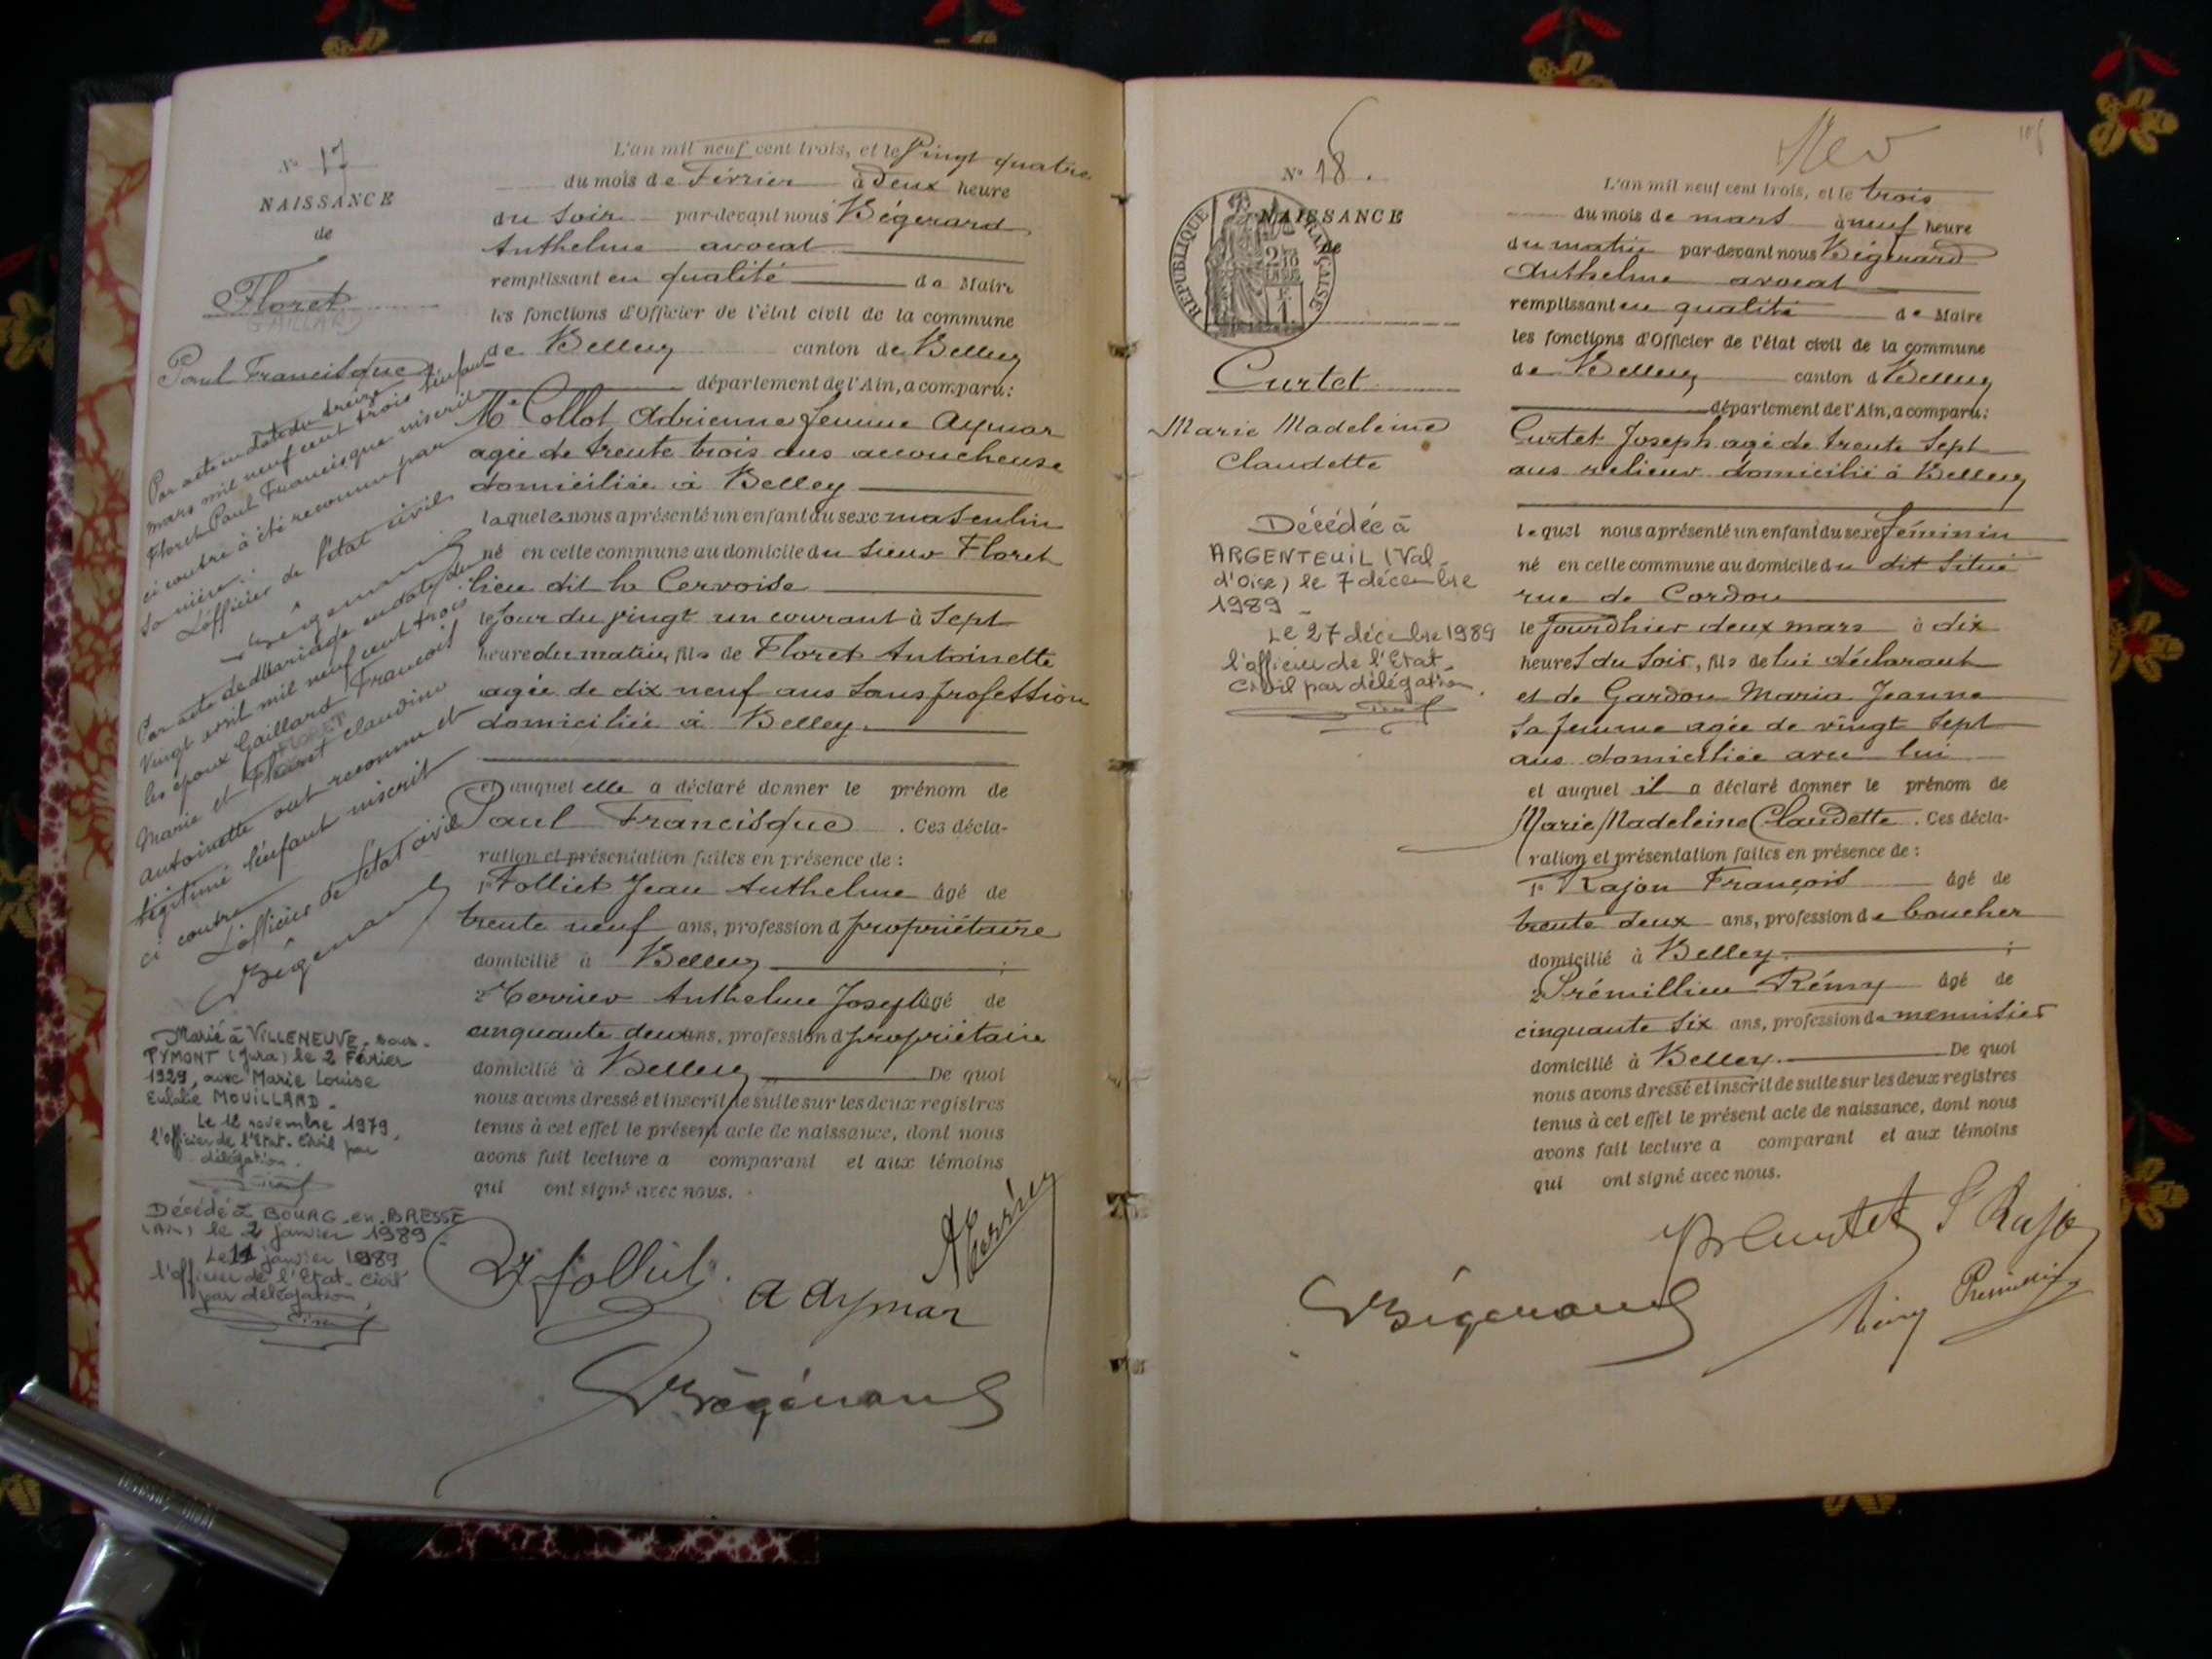 N° 17
NAISSANCE
de
Floret
(GAILLARD)
Paul Francisque
Par acte en date du treize
mars mil neuf cent trois l'enfant
Floret Paul Francisque inscrit
ci contre à été reconnu par
sa mère.
L'officier de l'état civil
Bégerard
Par acte de Mariage en date du
vingt avril mil neuf cent trois
les époux Gaillard François
Marie et Floret Claudine
Antoinette ont reconnu et
légitimé l'enfant inscrit
ci contre
L'officier de l'état civil
Bégerard
Marié à VILLENEUVE-sous-
PYMONT (Jura) le 2 Février
1929, avec Marie Louise
Eulalie MOUILLARD-
Le 12 novembre 1979,
l'officier de l'Etat-Civil par
délégation.
Décédé à BOURG-en-BRESSE
(Ain) le 2 janvier 1989-
Le 11 janvier 1989
l'officier de l'Etat-Civil
par délégation,
L'an mil neuf cent trois, et le Vingt quatre
du mois de Février à Deux heure
du Soir par-devant nous Bégerard
Anthelme avocat
remplissant en qualité de Maire
les fonctions d'Officier de l'état civil de la commune
de Belley canton de Belley
département de l'Ain, a comparu:
Me Collot Adrienne femme Aymar
agée de trente trois ans accoucheuse
domiciliée à Belley
laquelle nous a présenté un enfant du sexe masculin
né en cette commune au domicile du Sieur Floret
lieu dit la Cervoise
le jour du vingt un courant à Sept
heure du matin, fils de Floret Antoinette
agée de dix neuf ans sans profession
domiciliée à Belley.
et auquel elle a déclaré donner le prénom de
Paul Francisque . Ces décla-
ration et présentation faites en présence de :
1° Folliet Jean Anthelme âgé de
trente neuf ans, profession d propriétaire
domicilié à Belley ;
2° Terrier Anthelme Joseph âgé de
cinquante deux ans, profession d propriétaire
domicilié à Belley De quoi
nous avons dressé et inscrit de suite sur les deux registres
tenus à cet effet le présent acte de naissance, dont nous
avons fait lecture a comparant et aux témoins
qui ont signé avec nous.
folliet
A Terrier
A Aymar
Bégerard
N° 18.
RÉPUBLIQUE FRANÇAISE
NAISSANCE
de
Curtet
Marie Madeleine
Claudette
Décédée à
ARGENTEUIL (Val-
d'Oise) le 7 décembre
1989-
Le 27 décembre 1989
l'officier de l'Etat-
Civil par délégation.
L'an mil neuf cent trois, et le trois
du mois de mars à neuf heure
du matin par-devant nous Bégerard
Anthelme avocat
remplissant en qualité de Maire
les fonctions d'Officier de l'état civil de la commune
de Belley canton d Belley
département de l'Ain, a comparu:
Curtet Joseph agé de trente Sept
ans relieur domicilié à Belley
lequel nous a présenté un enfant du sexe féminin
né en cette commune au domicile du dit situé
rue de Cordon
le jourdhier deux mars à dix
heures du Soir, fils de lui déclarant
et de Gardon Maria Jeanne
sa femme agée de vingt Sept
ans domiciliée avec lui
et auquel il a déclaré donner le prénom de
Marie Madeleine Claudette. Ces décla-
ration et présentation faites en présence de :
1° Rajon François âgé de
trente deux ans, profession de boucher
domicilié à Belley. ;
2° Prémillieu Rémy âgé de
cinquante Six ans, profession de menuisier
domicilié à Belley. De quoi
nous avons dressé et inscrit de suite sur les deux registres
tenus à cet effet le présent acte de naissance, dont nous
avons fait lecture a comparant et aux témoins
qui ont signé avec nous.
Curtet
Bégerard